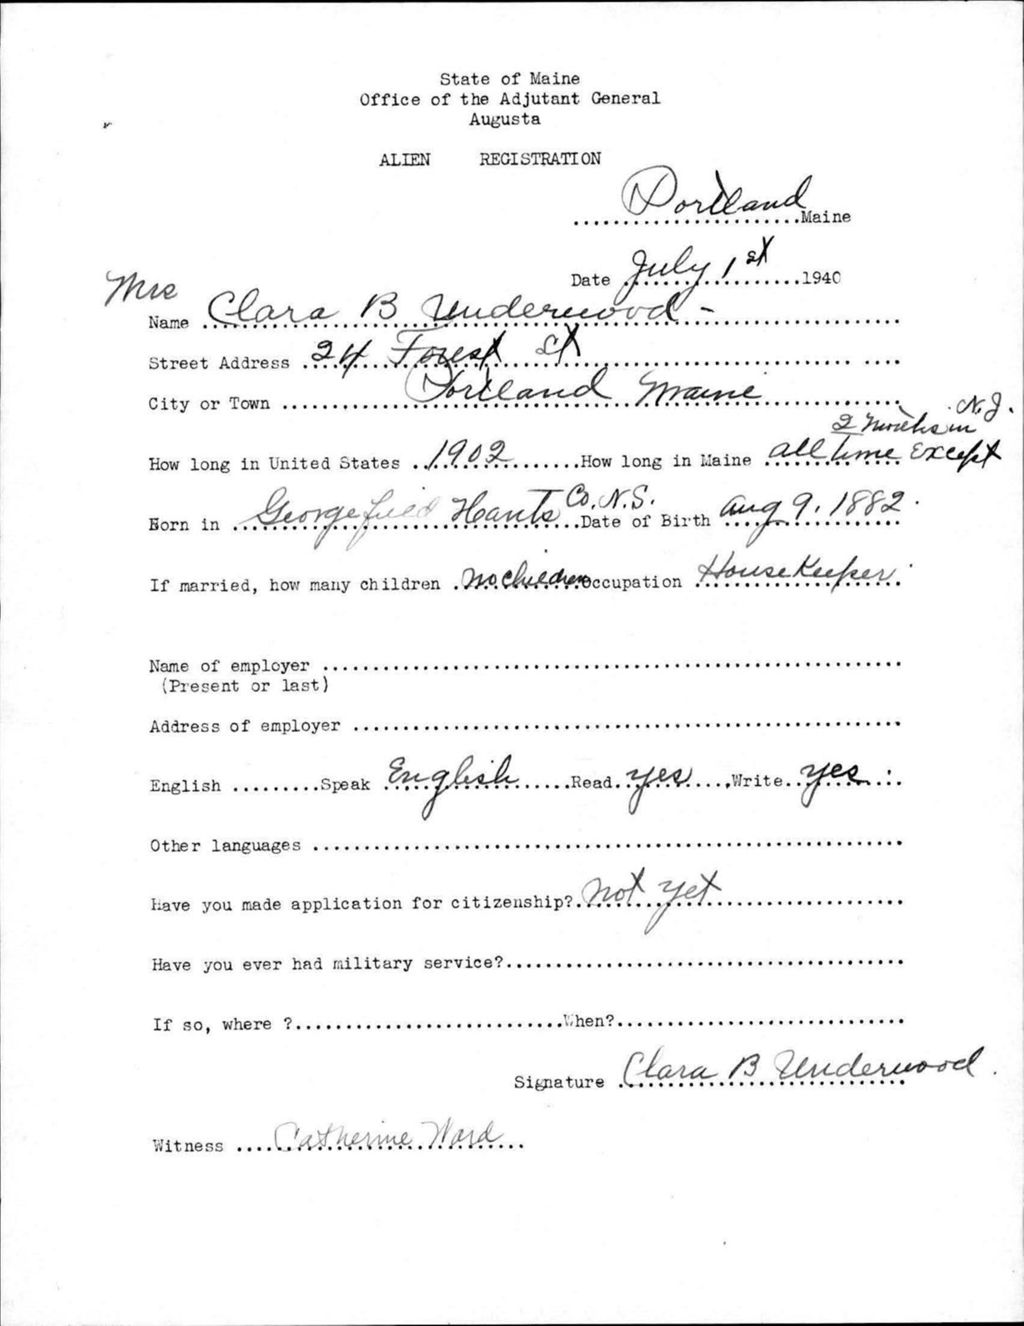 State of Maine
Office of the Adjutant General
Augusta
ALIEN REGISTRATION
Portland Maine
Date July 1st 1940
Mrs
Name Clara B Underwood -
Street Address 24 Forest St
City or Town Portland Maine
N.J.
2 months in
How long in United States 1902 How long in Maine all time Except
Born in Georgefield Hants Co. N.S. Date of Birth Aug 9. 1882.
If married, how many children No Children Occupation HouseKeeper
Name of employer
(Present or last)
Address of employer
English Speak English Read yes Write yes
Other languages
Have you made application for citizenship? Not yet
Have you ever had military service?
If so, where ? When?
Signature Clara B Underwood.
Witness Catherine Ward